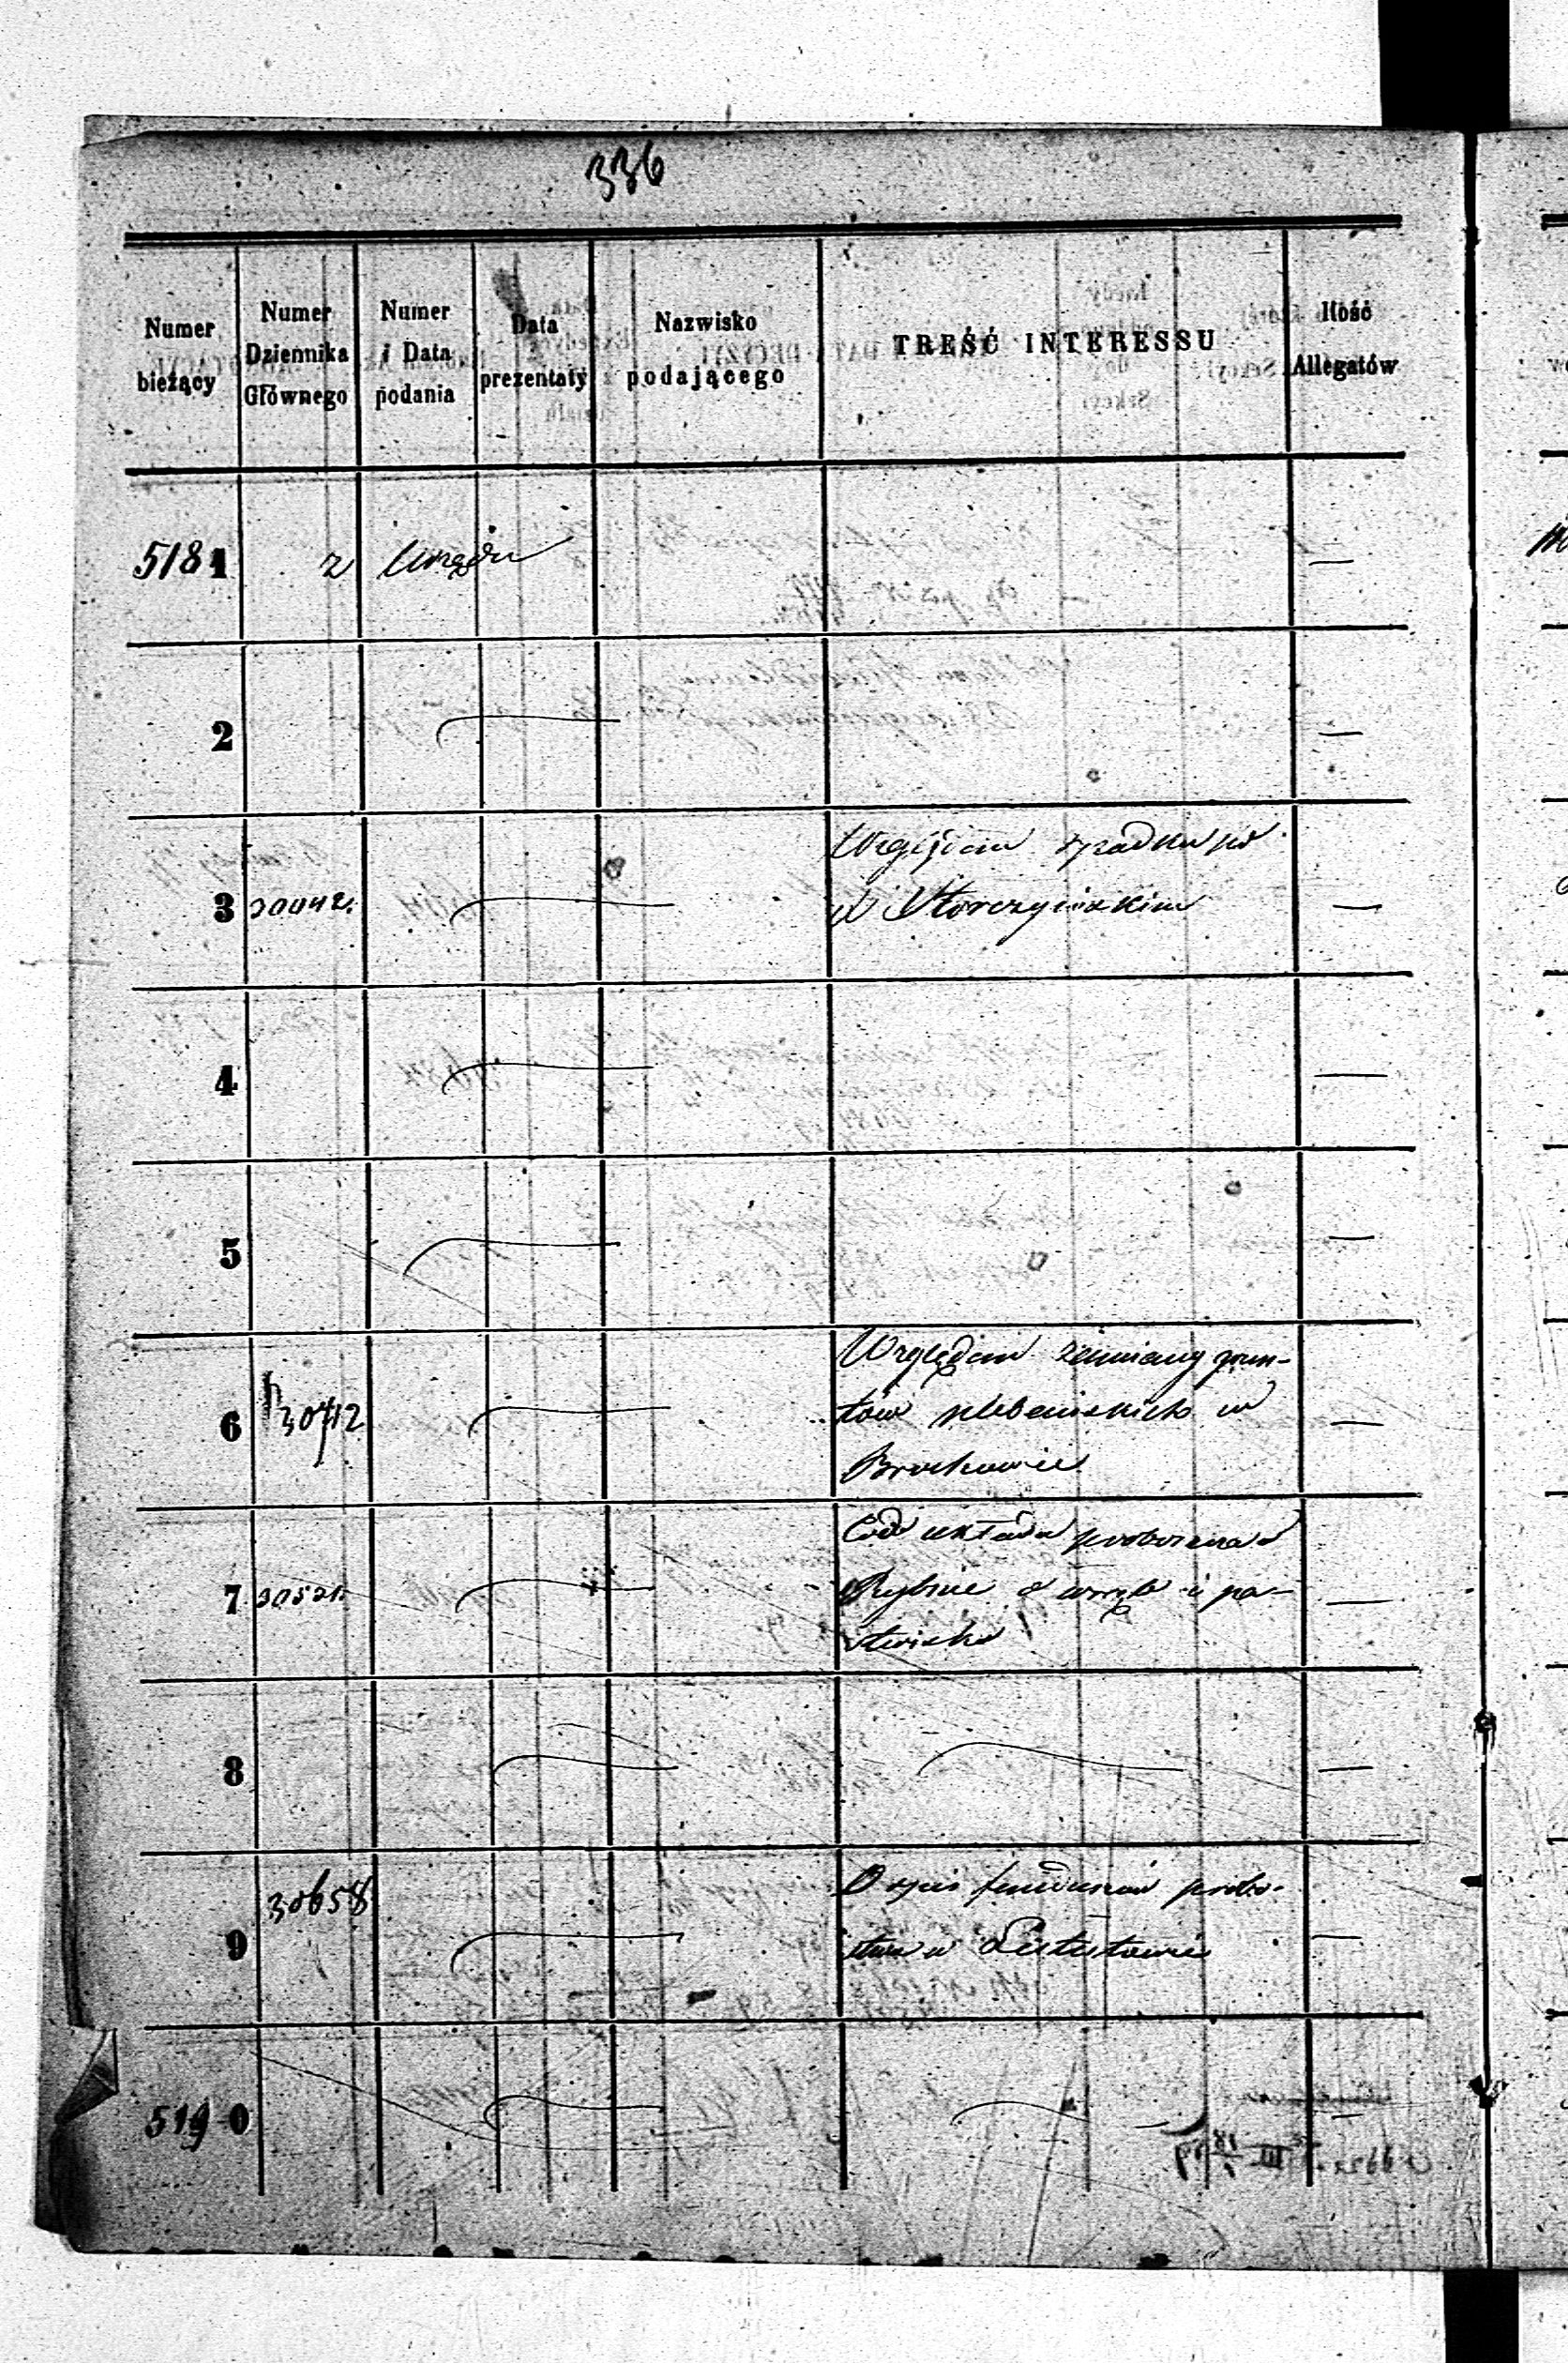 336
Numer bieżący
Numer Dziennika Głównego
Numer i Data podania
Data prezentaty
Nazwisko podającego
TREŚĆ INTERESSU
Ilość Allegatów
5181 z Urzędu —
2 —
3 30042. Względem spadku po
—
4 —
5 —
6 30712 Względem zamiany grun-
tów plebańskich w
Brochowie —
7 30521. proboszcza
Rybnie o wręb i pa-
stwisko —
8 —
9 30658 Opis funduszów probo-
stwa w —
5190 —